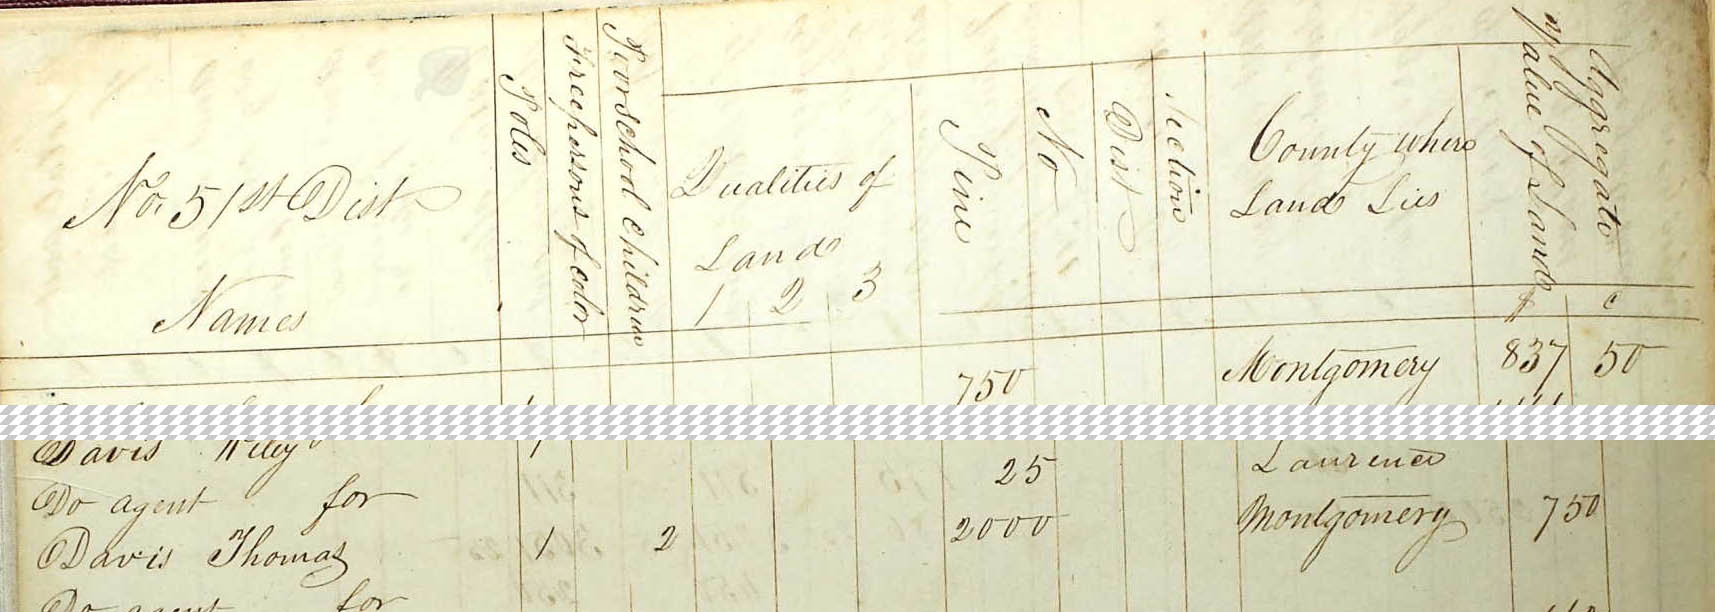 No. 51st Dist
Names
Polls
Free persons of color
Poor school children
Qualities of
Land
1 2 3
Pine
No
Dist
Section
County where
Land Lies
Aggregate
value of Land
$ c
750 Montgomery 837 50
Davis Riley 1 25 Laurence
Do agent for
Davis Thomas 1 2 2000 Montgomery 750
Do agent for